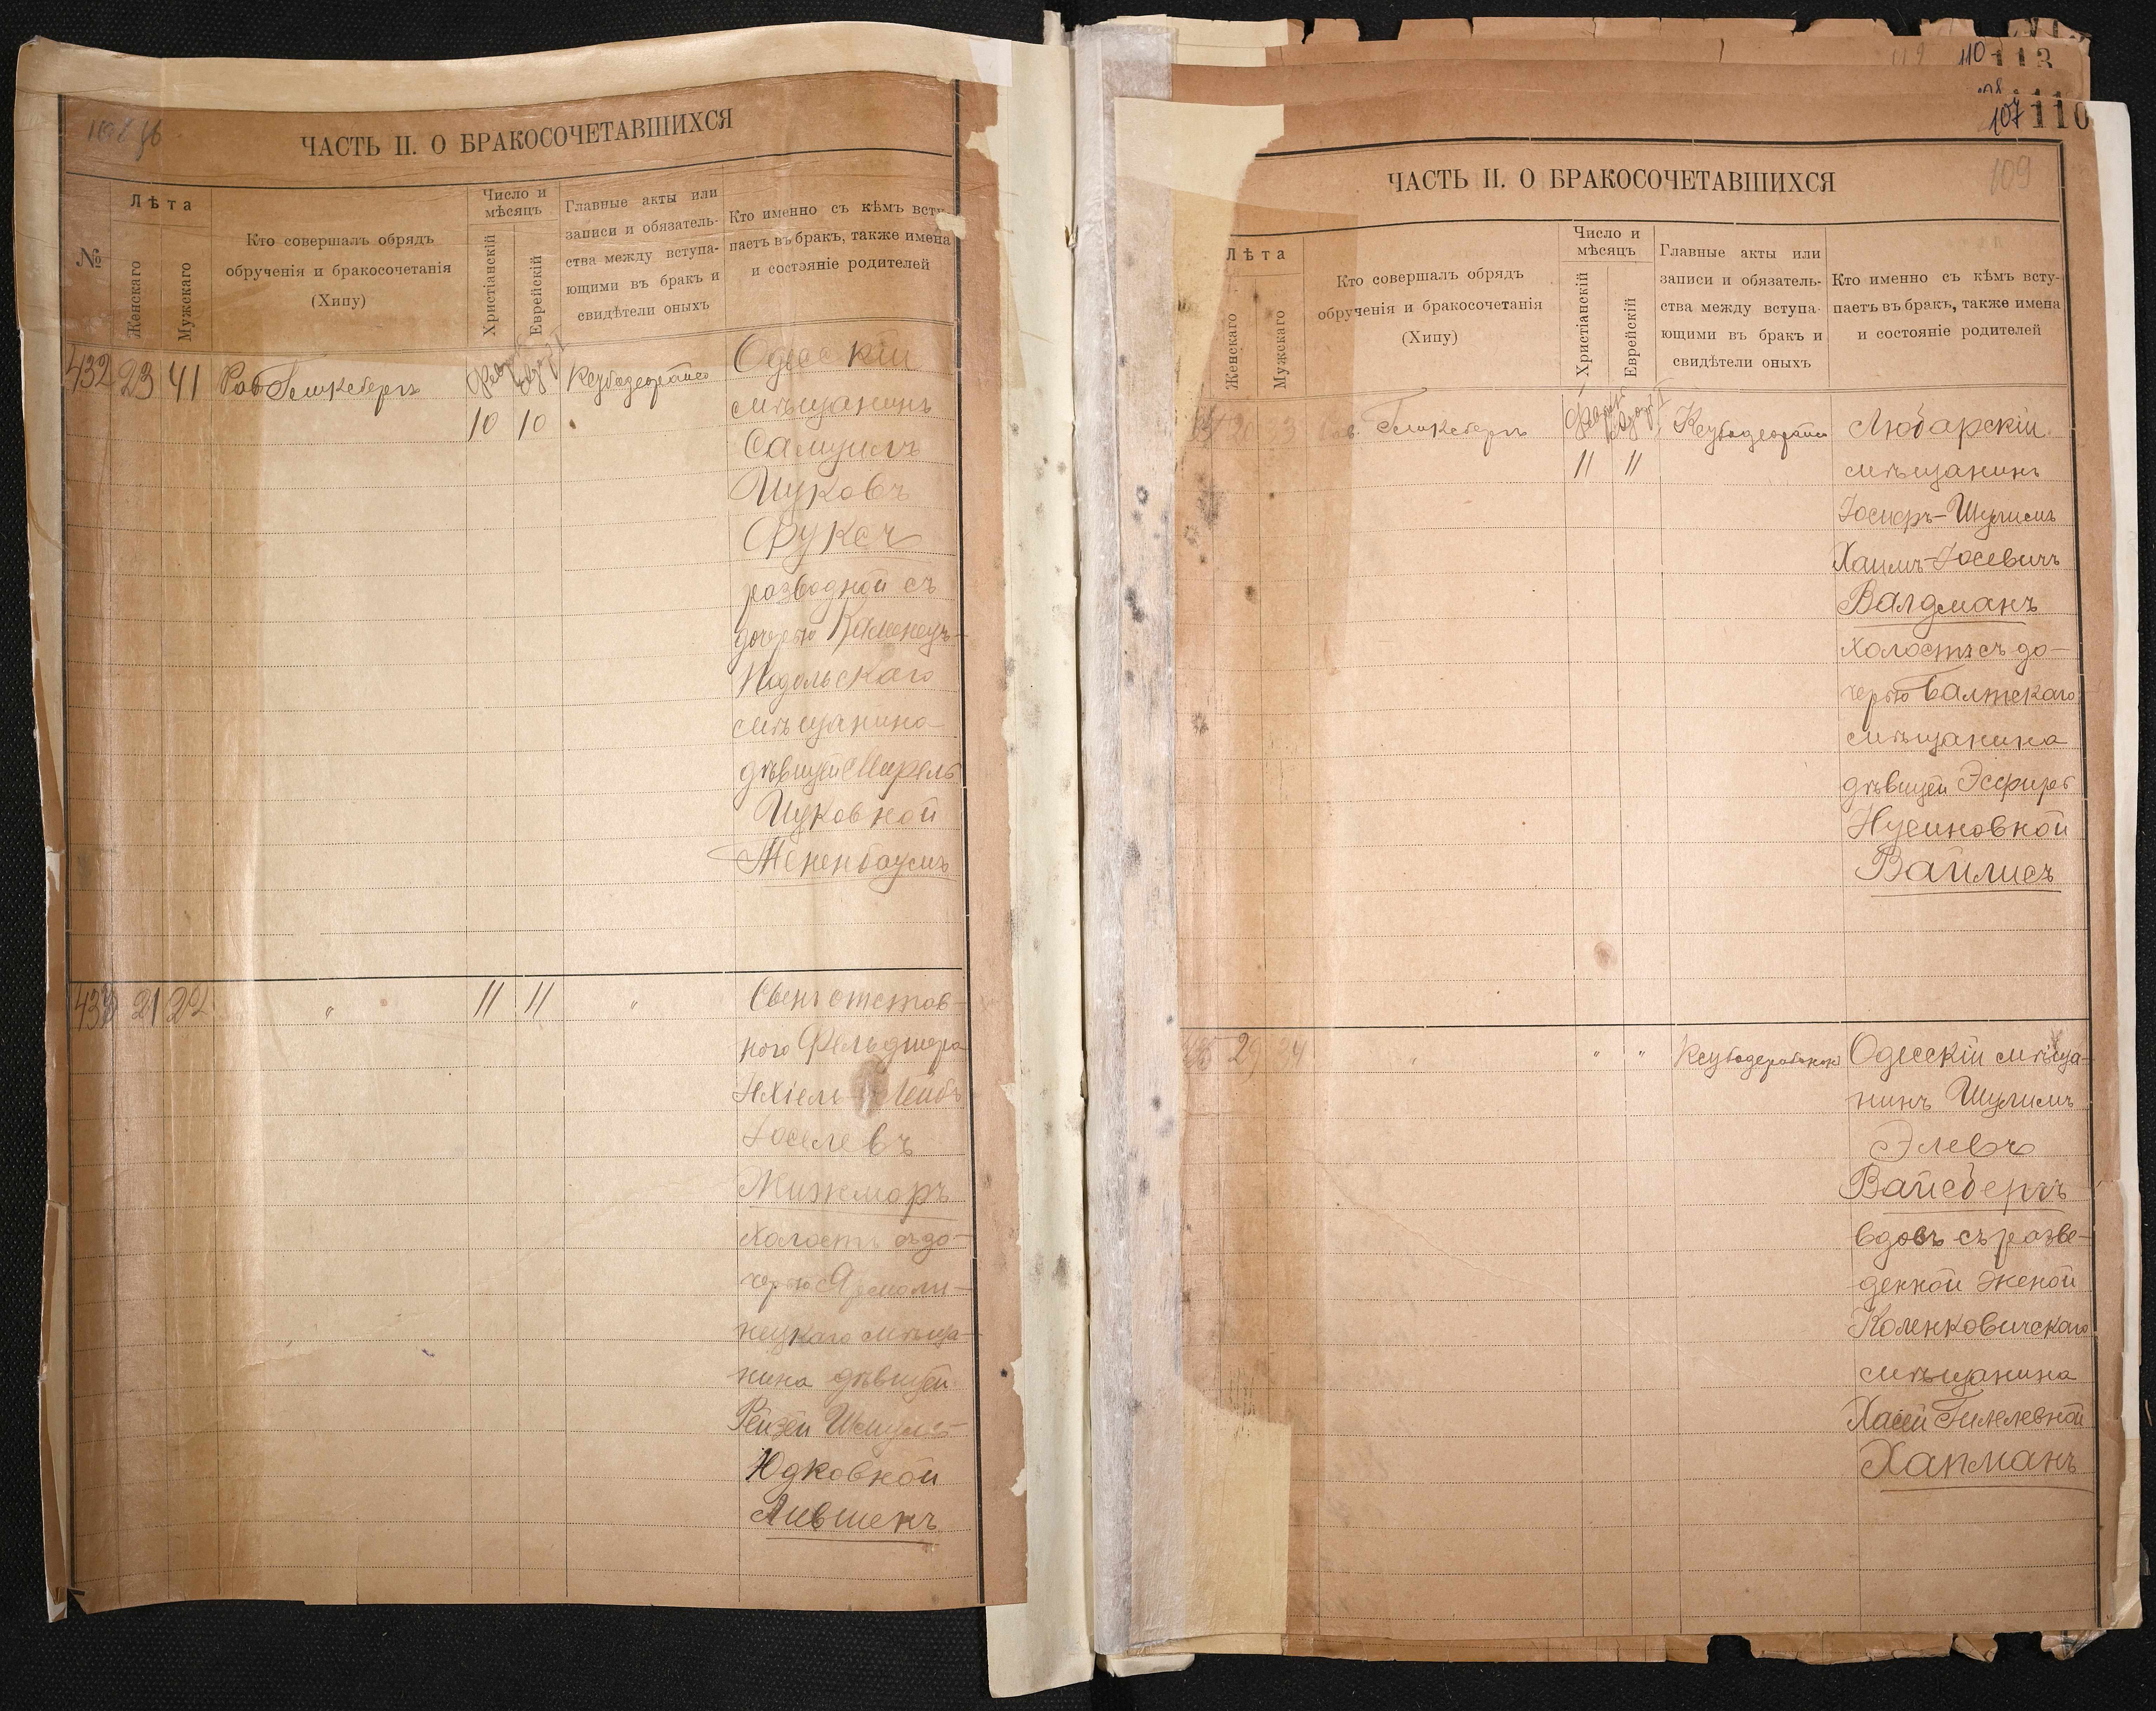 ЧАСТЬ II. О БРАКОСОЧЕТАВШИХСЯ
№
Лѣта
Женскаго
Мужскаго
Кто совершалъ обрядъ
обрученія и бракосочетанія
(Хипу)
Число и
мѣсяцъ
Христіанскій
Еврейскій
Главные акты или
записи и обязатель-
ства между вступа-
ющими въ бракъ и
свидѣтели оныхъ
Кто именно съ кѣмъ всту
паетъ въ бракъ, также имена
и состояніе родителей
432 23 41 Раб. Гинксбергъ
10 10
Одесскій
мѣщанинъ
Самуилъ
Ицковъ
Фуксъ
разводной съ
дочерью Каменецъ-
Подольскаго
мѣщанина
дѣвицей Мирель
Ицковной
Тененбаумъ
433 21 22 " 11 11 "
ного Фельдшера
Іехіель-Лейбъ
Іоселевъ
Жижморъ
холостъ съ до-
черью Ярмоли-
нецкаго мѣща-
нина дѣвицей
Рейзей Шмуль-
Юдковной
Лившенъ
107 110
110 113
109
ЧАСТЬ II. О БРАКОСОЧЕТАВШИХСЯ
Лѣта
Женскаго
Мужскаго
Кто совершалъ обрядъ
обрученія и бракосочетанія
(Хипу)
Число и
мѣсяцъ
Христіанскій
Еврейскій
Главные акты или
записи и обязатель-
ства между вступа-
ющими въ бракъ и
свидѣтели оныхъ
Кто именно съ кѣмъ всту-
паетъ въ бракъ, также имена
и состояніе родителей
Гинксбергъ
11 11
Любарскій
мѣщанинъ
Іосифъ-Шулимъ
Хаимъ-Іосевичъ
Валдманъ
холостъ съ до-
черью Балтскаго
мѣщанина
дѣвицей Эсфирь
Нусиновной
Вайлисъ
35 29 34 " " "
Одесскій мѣща-
нинъ Шулимъ
Элевъ
Вайсбергъ
вдовъ съ разве-
денной женой
Коленковичскаго
мѣщанина
Хасей Гилелевной
Хапманъ